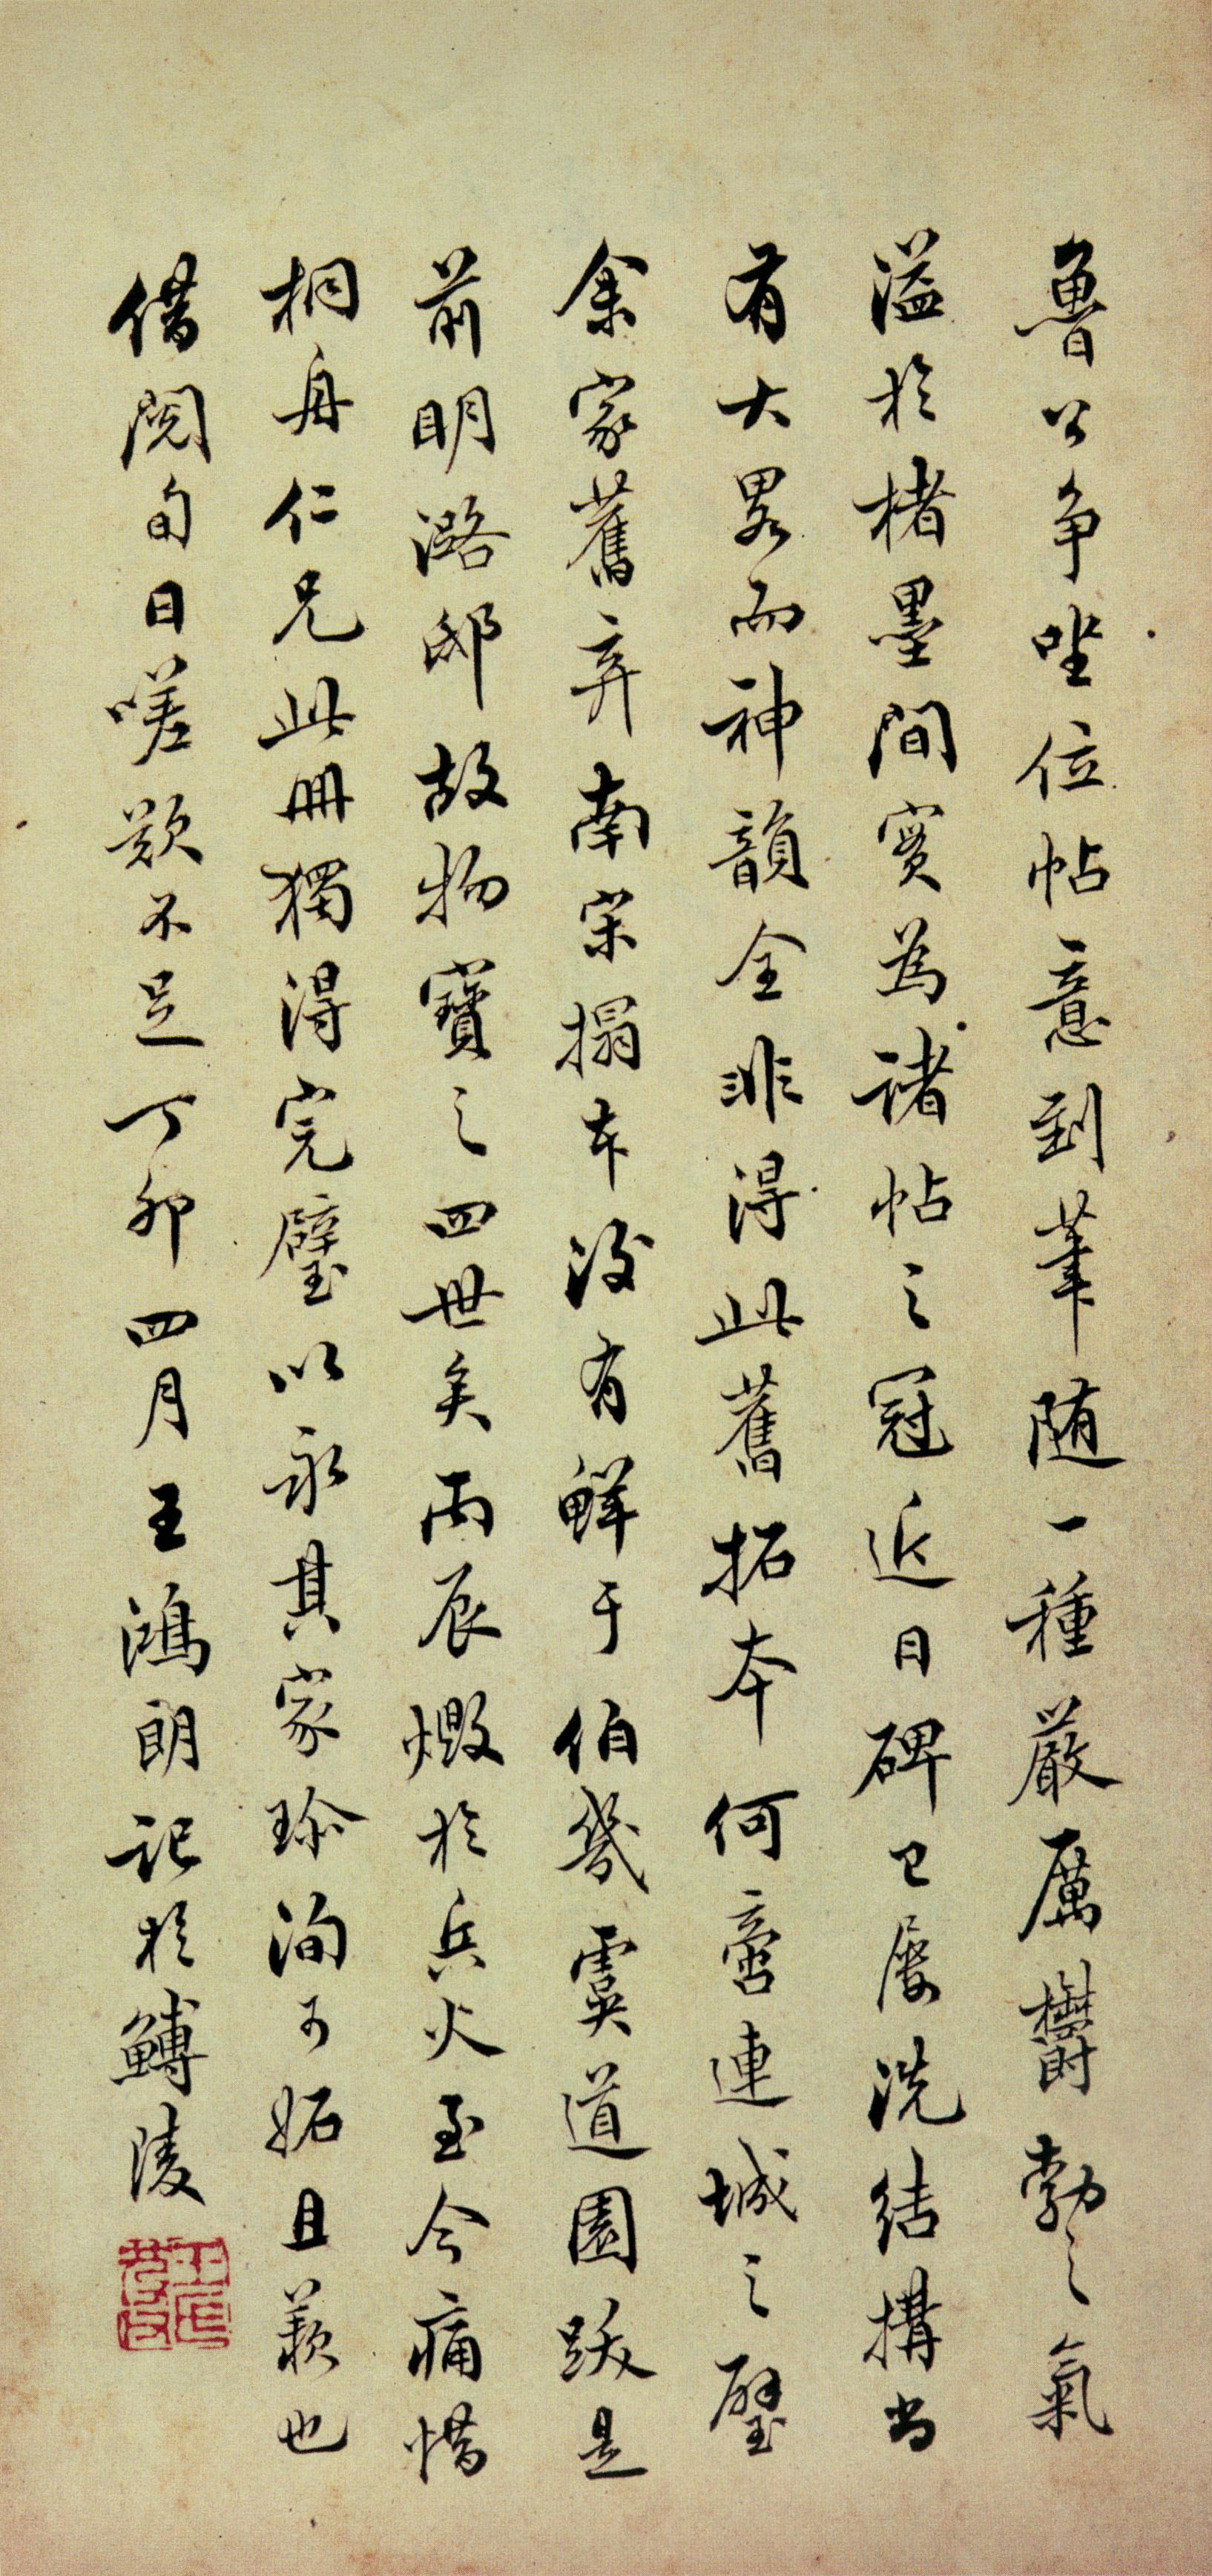 魯公争坐位帖意到筆随一種嚴厲鬱勃之氣
溢於楮墨間實為諸帖之冠近日碑已屡洗結構尚
有大畧而神韻全非得此舊拓本何啻連城之璧
余家舊弆南宋搨本後有鮮于伯幾虞道園跋是
前明潞邸故物寶之四世矣丙辰燬於兵火至今痛惜
桐舟仁兄此冊獨得完璧以永其家珎洵可妬且羡也
借閱旬日嗟歎不足丁卯四月王鴻朗記於鱄陵